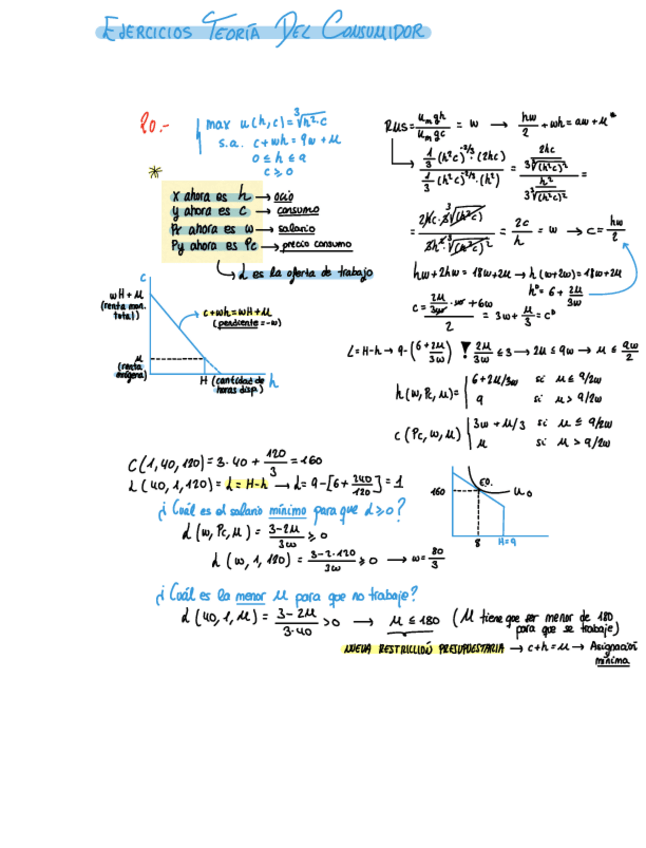 EJERCICIOS TEORÍA DEL CONSUMIDOR
20.-
max u(h,c) = ∛h²·c
s.a. c+wh = 9w+M
0 ≤ h ≤ 9
c ≥ 0
*
X ahora es h → ocio
y ahora es c → consumo
Px ahora es w → salario
Py ahora es Pc → precio consumo
L es la oferta de trabajo
C
wH+M
(renta mon. total)
c+wh = wH+M
(pendiente = -w)
M
(renta exógena)
H (cantidad de horas disp.)
h
RMS = umgh/umgc = w → hw/2 + wh = 9w+M
1/3 (h²c)^-2/3 · (2hc) / 1/3 (h²c)^-2/3 · (h²) = 2hc/3∛(h²c)² / h²/3∛(h²c)² =
= 2hc·3∛(h²c)² / 3h²·∛(h²c)² = 2c/h = w → c = hw/2
hw + 2hw = 18w + 2M → h(w+2w) = 18w + 2M
h* = 6 + 2M/3w
c = (2M/3w · w + 6w)/2 = 3w + M/3 = c*
L = H-h → 9-(6+2M/3w) ! 2M/3w ≤ 3 → 2M ≤ 9w → M ≤ 9w/2
h(w,Pc,M) = | 6+2M/3w si M ≤ 9/2w
9 si M > 9/2w
c(Pc,w,M) | 3w + M/3 si M ≤ 9/2w
M si M > 9/2w
C(1,40,120) = 3·40 + 120/3 = 160
L(40,1,120) = L = H-h → L = 9-[6+240/120] = 1
¿Cuál es el salario mínimo para que L ≥ 0?
L(w,Pc,M) = 3-2M/3w ≥ 0
L(w,1,120) = 3-2·120/3w ≥ 0 → w = 80/3
160
EO.
u₀
8
H=9
¿Cuál es la menor M para que no trabaje?
L(40,1,M) = 3-2M/3·40 > 0 → M ≤ 180 (M tiene que ser menor de 180 para que se trabaje)
NUEVA RESTRICCIÓN PRESUPUESTARIA → c+h = M → Asignación mínima